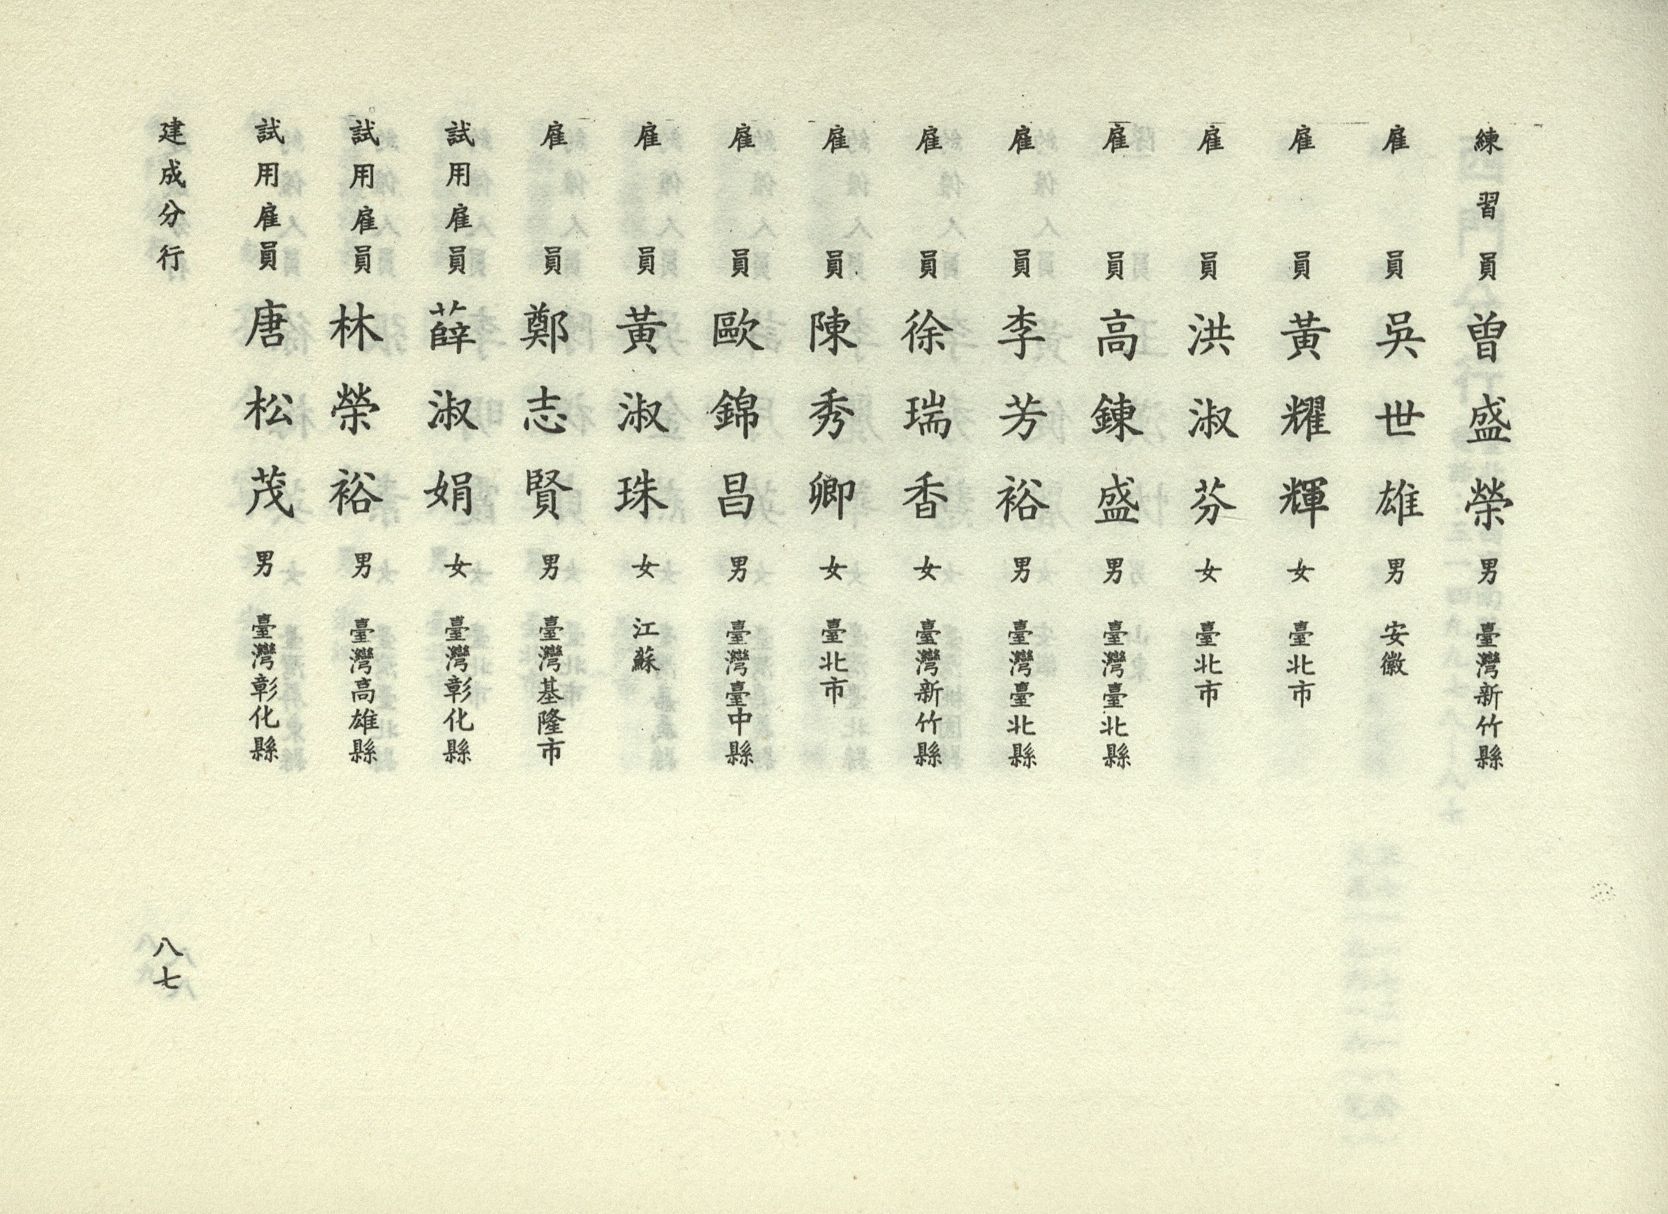 練習員 曾盛榮 男 臺灣新竹縣
雇員 吳世雄 男 安徽
雇員 黃耀輝 女 臺北市
雇員 洪淑芬 女 臺北市
雇員 高鍊盛 男 臺灣臺北縣
雇員 李芳裕 男 臺灣臺北縣
雇員 徐瑞香 女 臺灣新竹縣
雇員 陳秀卿 女 臺北市
雇員 歐錦昌 男 臺灣臺中縣
雇員 黃淑珠 女 江蘇
雇員 鄭志賢 男 臺灣基隆市
試用雇員 薛淑娟 女 臺灣彰化縣
試用雇員 林榮裕 男 臺灣高雄縣
試用雇員 唐松茂 男 臺灣彰化縣
建成分行
八七